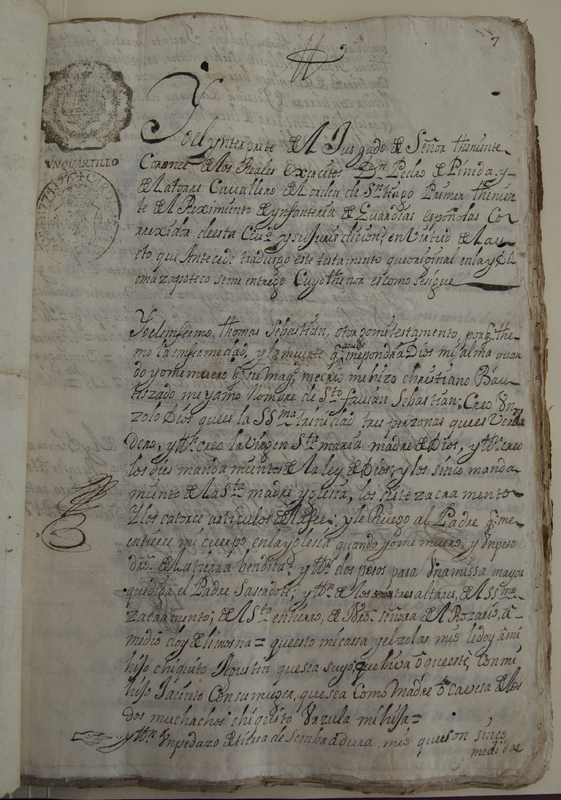 7
VN QVARTILLO
Yo el ynterprete de el Jusgado de Señor Theniente
Coronel de los Reales exercitos Dn Pedro de Pineda, y
de la torre Cavallero de el orden de Sn tiago Primer Thenien
te de el Reximiento de ynfanteria de Guardias españolas Co
rrexidor de esta Ciud y su Jurisdicion; en Virtud de el au
to que Antecede tradusgo este testamento que original en la y di
oma zapoteco se me entrego Cuyo thenor es como se sigue
Yo el enfermo, thomas Sebastian, otorgo mi testamento, porq the
mo la enfermedad, y la muerte q me pondra Dios mi alma quan
do yo me muero q su mag me crio me hizo christiano Bau
tizado me yamo Nombre de Sto favian Sebastian: Creo Vn
zolo Dios que es la SSma trinidad tres perzonas que es Verda
dero, y tn creo la Virgen Sta maria madre de Dios, y tn creo
los dies mandamientos de la ley de Dios, y los sinco manda
miento de la Sta madre yglesia, los siete zacramento
y los catorce articulos de la fee; y le Ruego al Padre q me
entierre mi cuerpo en la yglesia quando yo me muero, y Vn peso
de la tierra bendita, y tn dos pesos para Vna missa mayor
que diga el Padre Sasedote; y tn de los tres altares, de el SSmo
zacramento; de el Sto entierro, de Nra señora de el Rozario, a
medio doy de limosna = questo mi cassa y el zolar mio le doy a mi
hijo chiquito Agustin que sea suyo, que biva o que este, con mi
hijo Jacinto Con su muger, que sea como Madre o cavesa de los
dos muchachos chiquito Vrzula mi hija =
y tn Vn pedazo de tierra de sembradura mio que son sinco
medidas